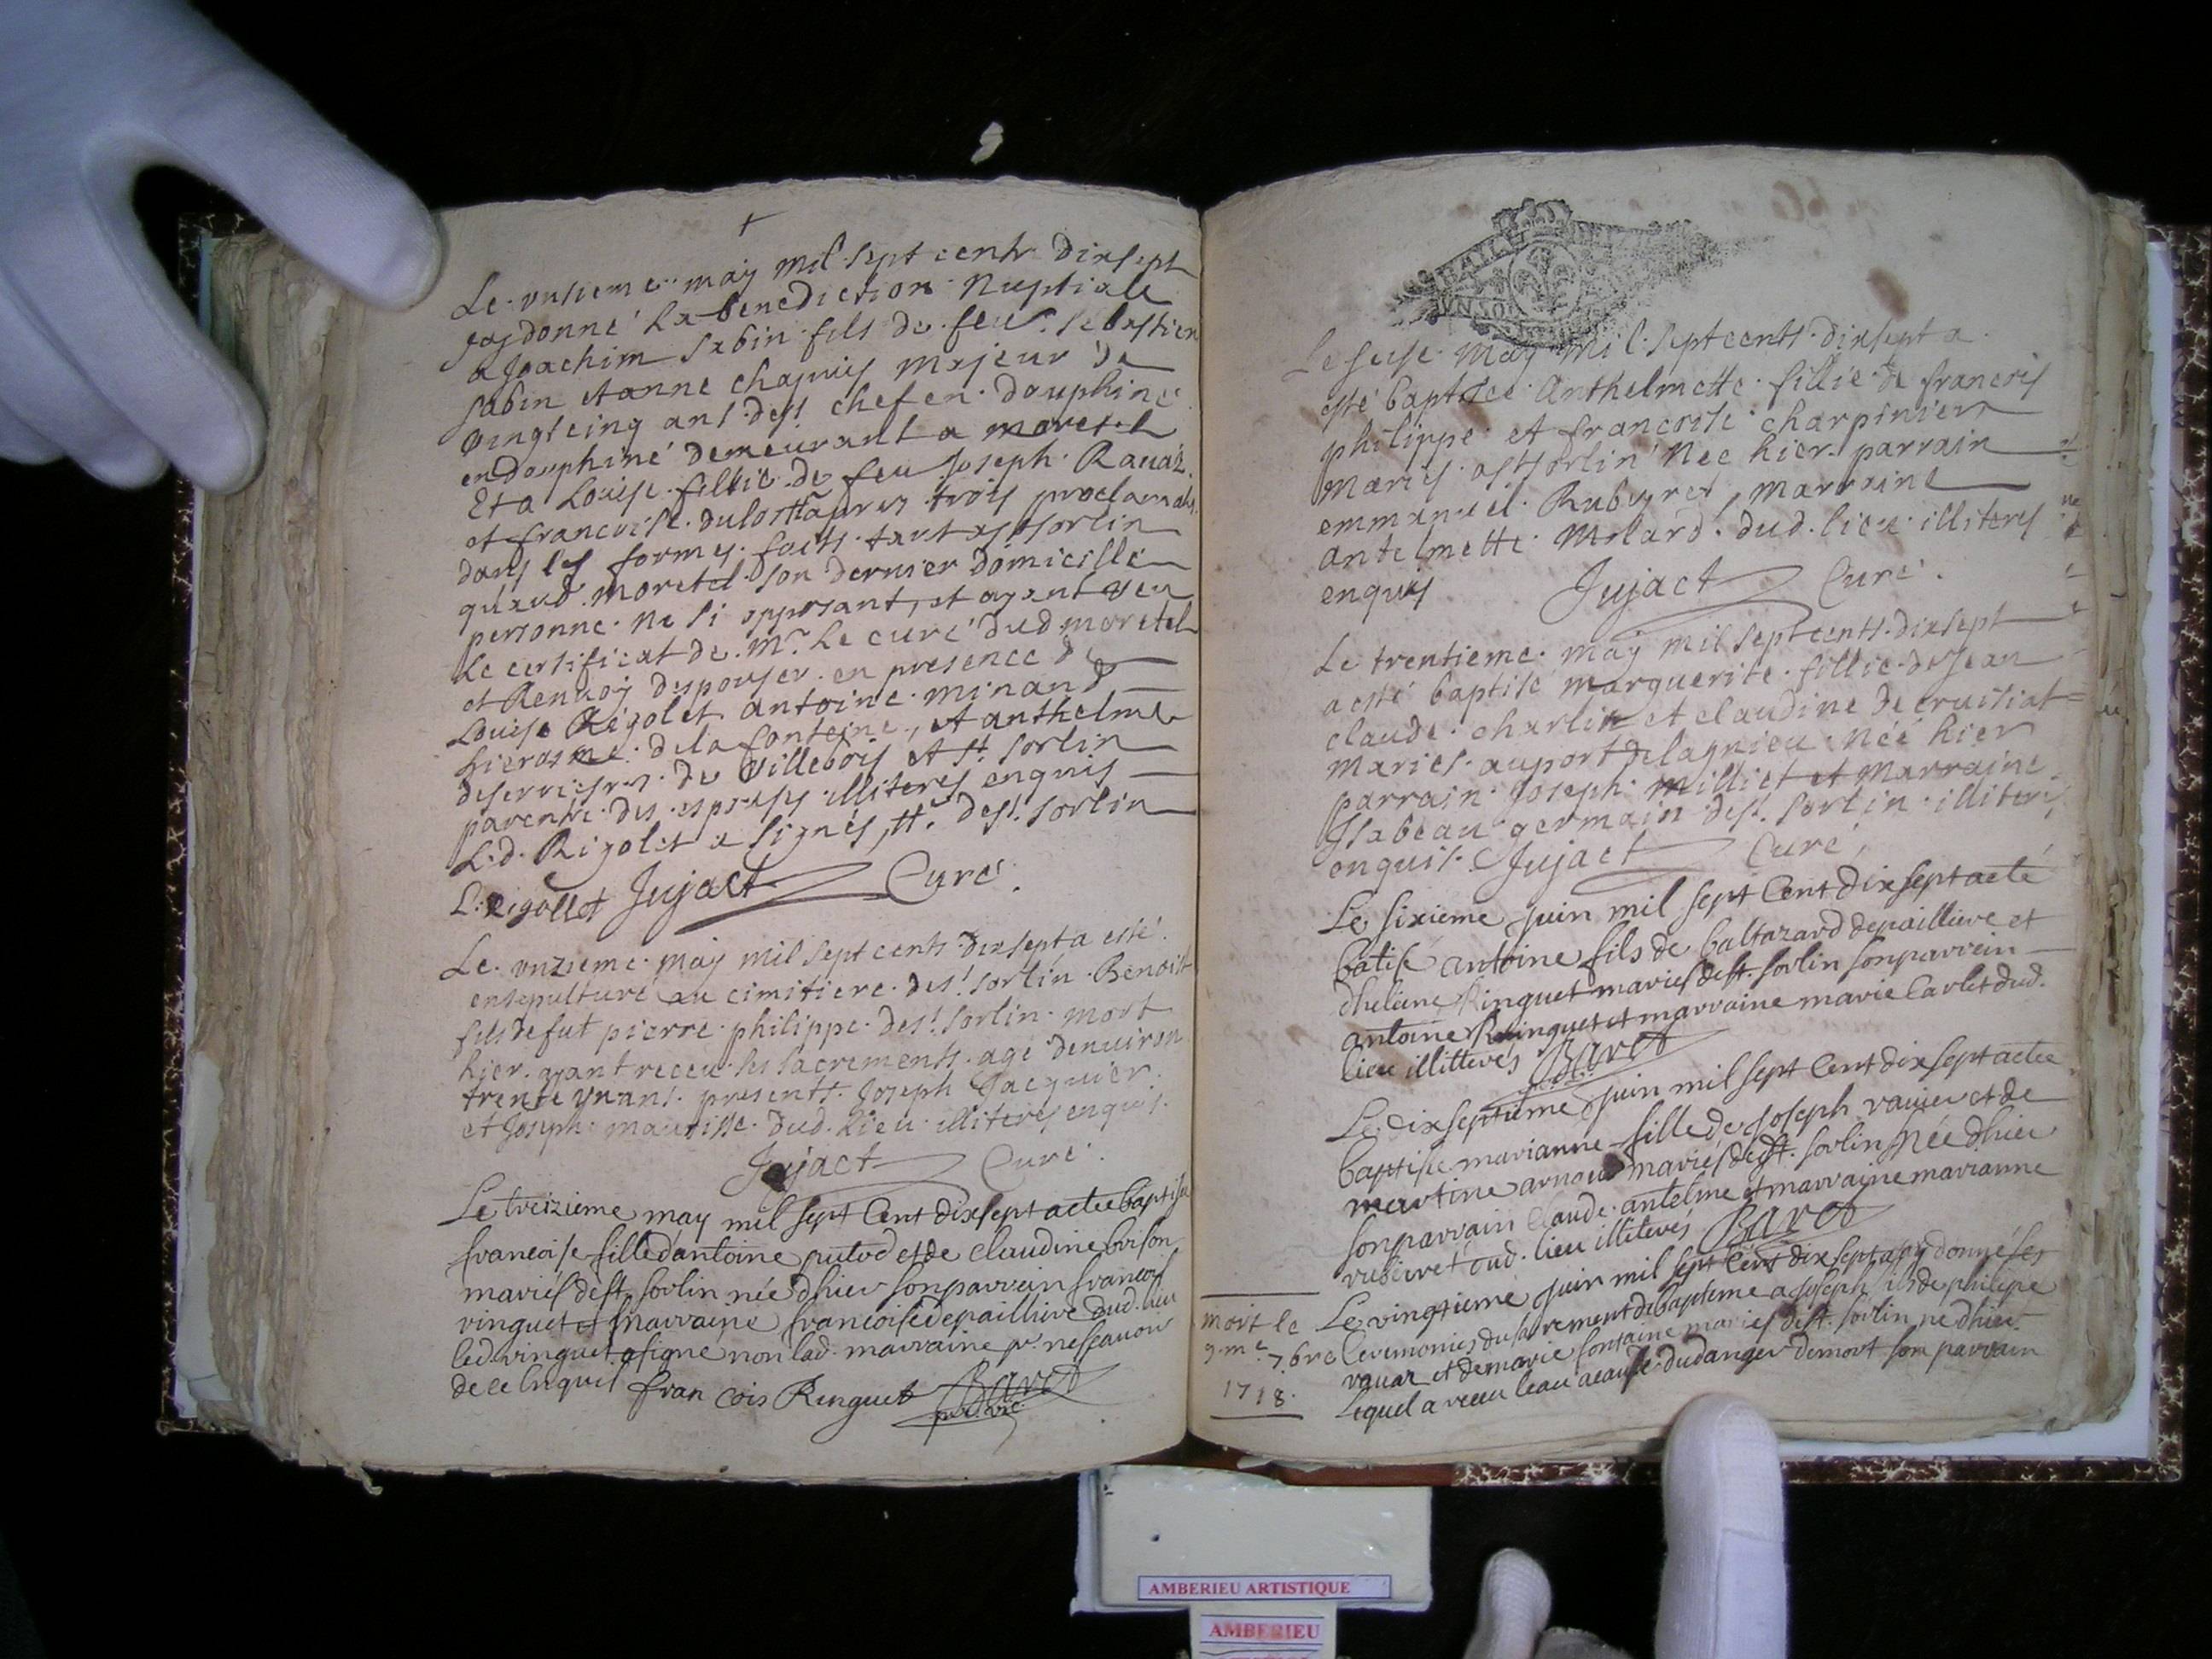 Le unsieme may mil sept cents dixsept
jay donné la benediction nuptiale
a Joachim Sabin fils de feu Sebastien
Sabin et anne chapuis majeur de
vingt cinq ans chef en dauphiné
en dauphiné demeurant a moretel
Et a Louise fillie de feu Joseph Ravaz
et francoise apres trois proclamaōs
dans les formes faits tant a st sorlin
quaud. moretel son dernier domicille
personne ne si opposant, et ayant veu
Le certificat de Mr. Le curé dud moretel
et Renvoy despouser en presence de
Louise Rigolet antoine minand
hierosme de la fonteine, et anthelme
de villebois et st. sorlin
parents des espouses illiteres enquis
L.d. Rigolet a signés, dest. sorlin
L: Rigollet Jujact Curé.
Le unzieme may mil sept cents dixsept a esté
ensepulturé au cimitiere dest sorlin Benoit
fils de fut pierre philippe dest sorlin mort
hier ayant receu les sacrements agé denviron
trente un ans presents Joseph Jacquier
et Joseph maurisse dud. lieu illiteres enquis.
Jujact Curé.
Le treizieme may mil sept Cent dixsept a etee baptisee
francoise fille dantoine putod et de claudine brison
mariés de st. sorlin née dhier son parrain francois
ringuet et marraine francoise depailliere dud. lieu
led. ringuet a signe non lad. marraine pr. ne scavoir
de ce enquis fran cois Ringuet Baret
ptre vic
Le seise may mil sept cents dixsept a
esté baptisée Anthelmette fillie de francois
philippe et francoise charpinier
mariés a st sorlin née hier parrain
emmanuel Rubeyret, marraine
antelmette Molard dud. lieu illiteres
enquis Jujact Curé.
Le trentieme may mil sept cents dixsept
a esté baptisé marguerite fillie de Jean
claude charlin et claudine de cruisiat
mariés au port de lagnieu née hier
parrain Joseph Milliet et Marraine
Isabeau germain dest. sorlin illiteres
enquis. Jujact Curé,
Le sixieme juin mil sept Cent dix sept a eté
batisé antoine fils de baltazard depailliere et
dheleine Ringuet mariés de st. sorlin son parrein
antoine Ringuet et marraine marie Carlet dud.
lieu illitterés Baret
Le dixseptieme juin mil sept Cent dix sept a etee
baptisee marianne fille de joseph ravier et de
martine arnoud mariés de st. sorlin née dhier
son parrain Claude antelme et marraine marianne
rubeirret dud. lieu illiterés Baret
Le vingtieme juin mil sept Cent dix sept ay donné les
Ceremonies du sacrement de bapteme a joseph fils de philipe
ravaz et de marie fontaine mariés de st. sorlin né dhier
Lequel a receu leau a cause du danger de mort son parrain
mort le
9.me 7bre
1718.
AMBERIEU ARTISTIQUE
AMBERIEU